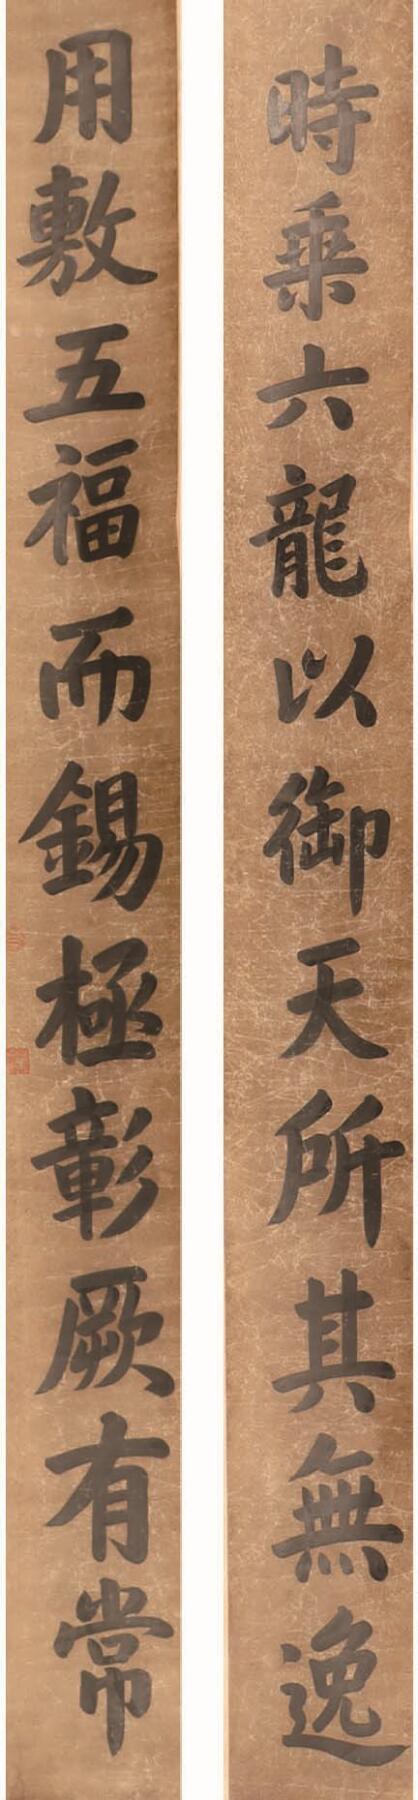 時乘六龍以御天所其無逸
用敷五福而錫極彰厥有常